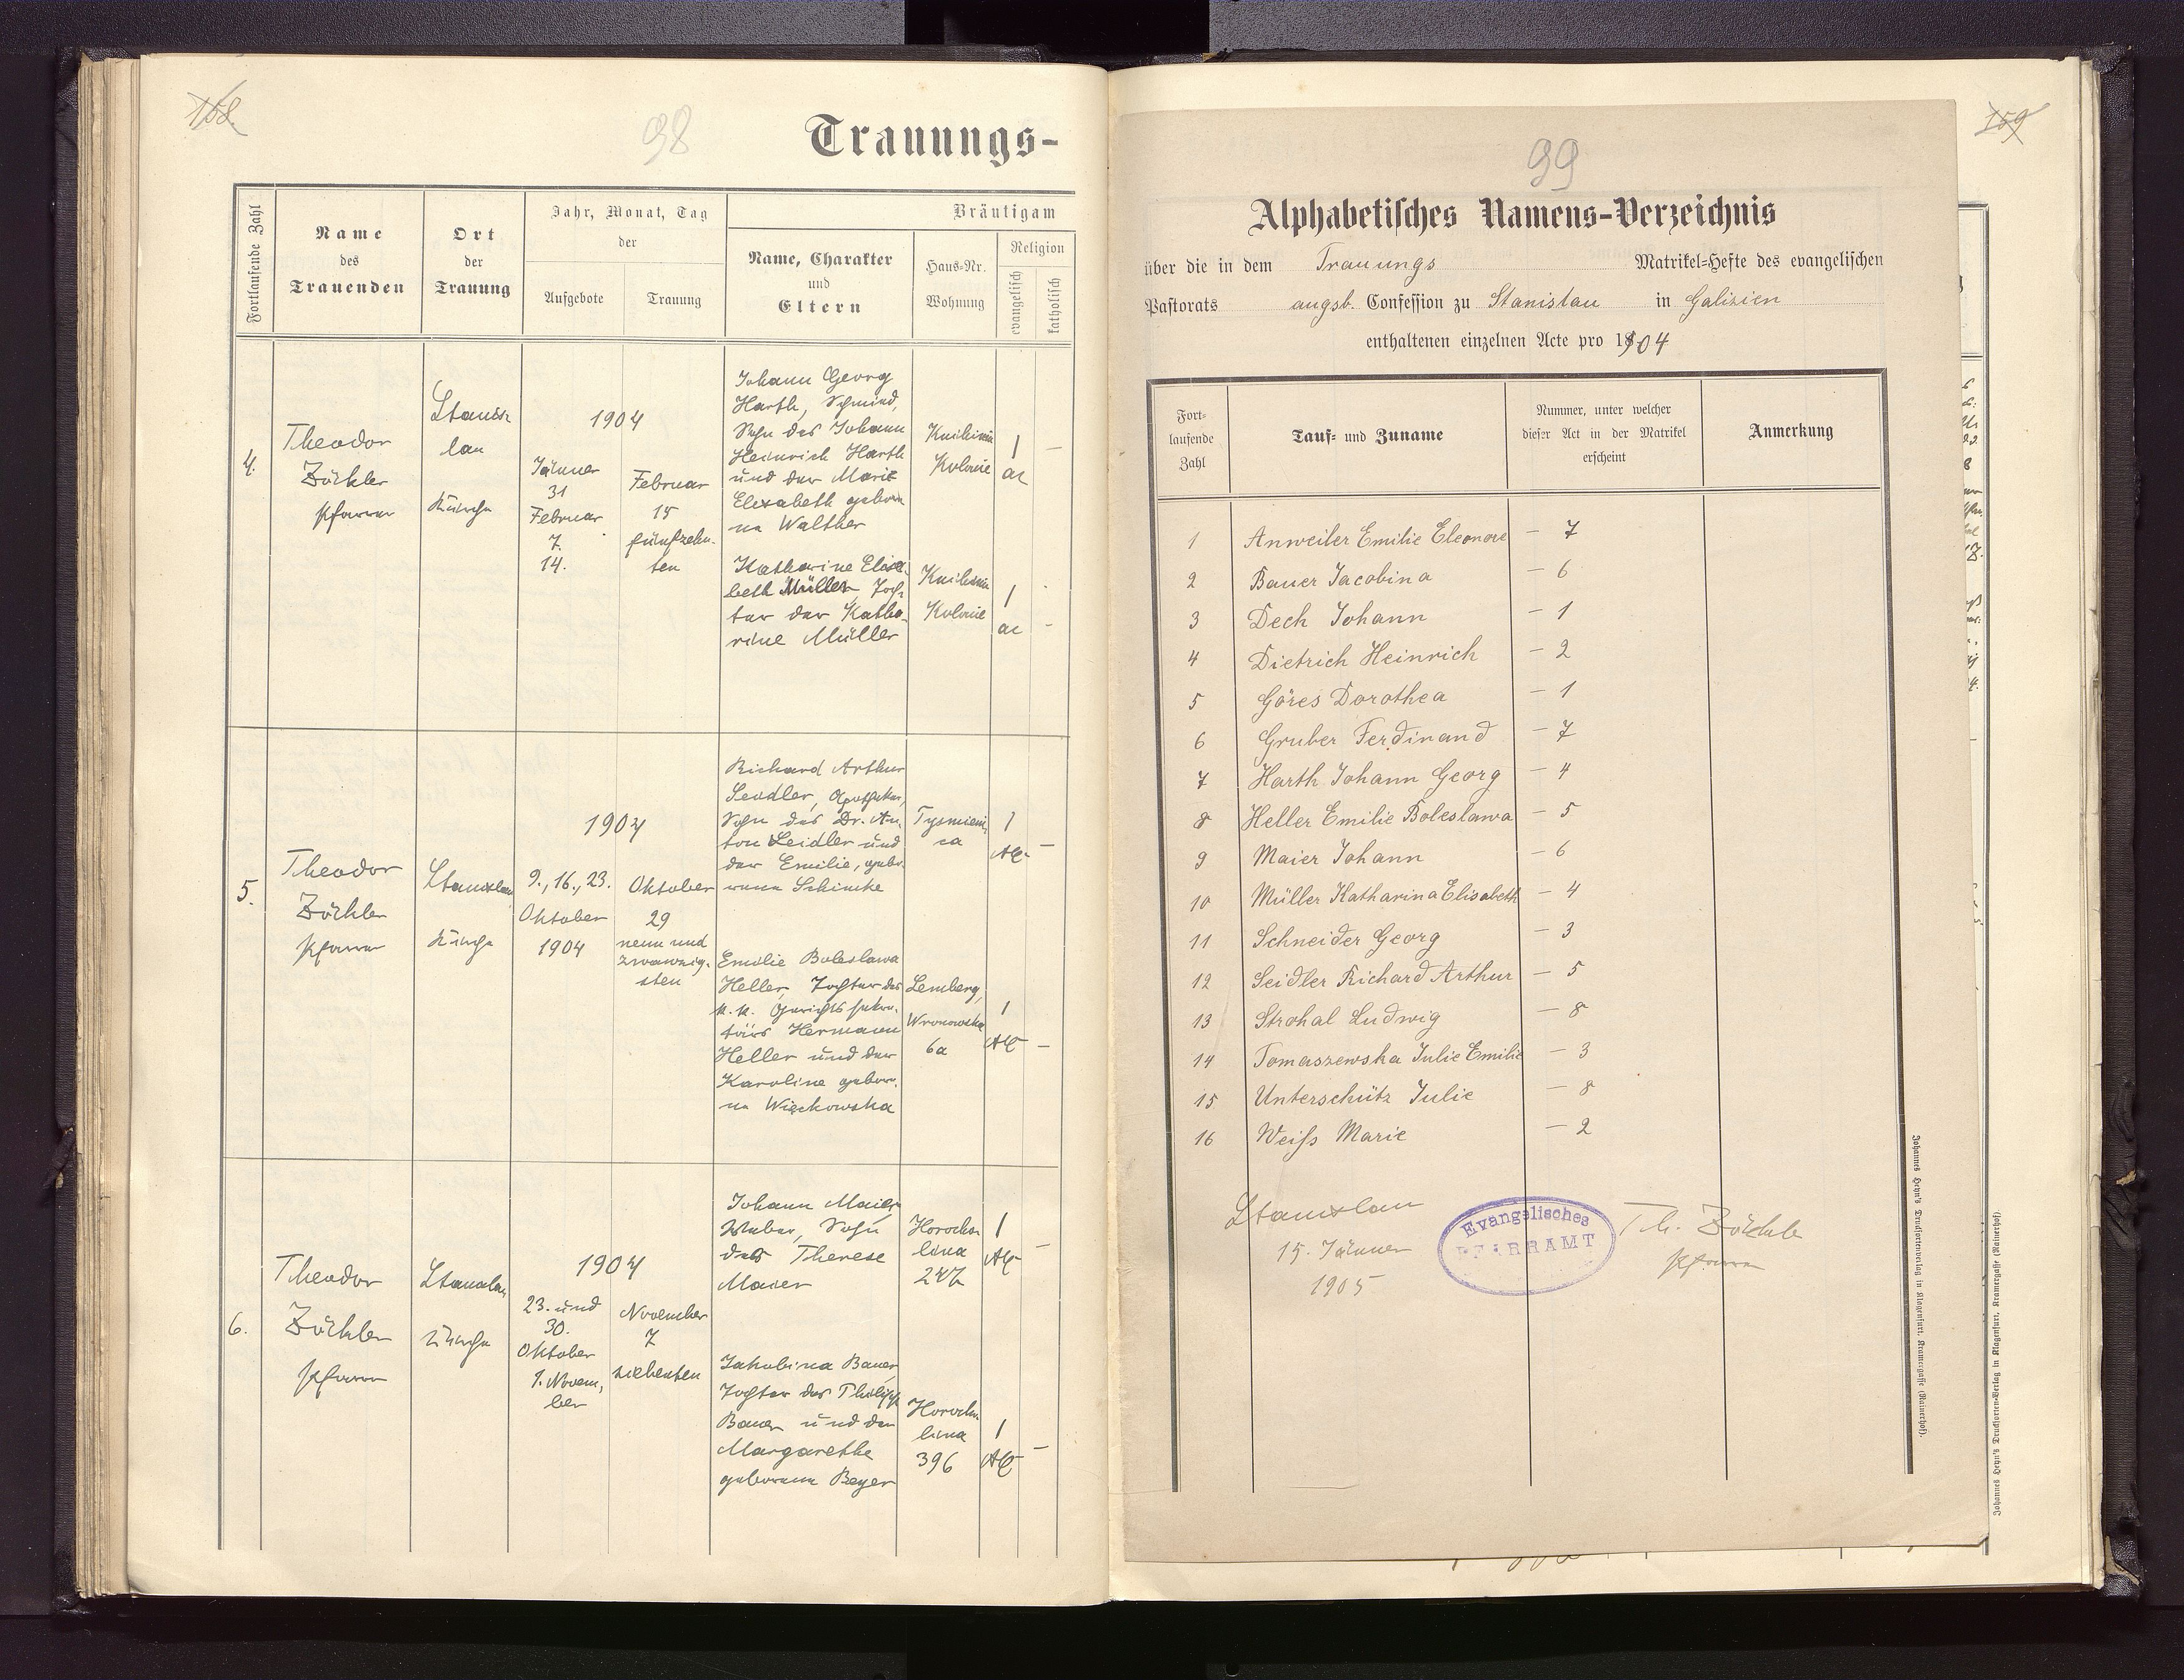 158.
98
Trauungs-
Fortlaufende Zahl
Name
des
Trauenden
Ort
der
Trauung
Jahr, Monat, Tag
der
Aufgebote
Trauung
Bräutigam
Name, Charakter
und
Eltern
Haus-Nr.
Wohnung
Religion
evangelisch
katholisch
4.
Theodor
Zöckler
Pfarrer
Stanis-
lau
Kirche
1904
Jänner
31
Februar
7.
14.
Februar
15
fünfzehn-
ten
Johann Georg
Harth, Schmied,
Sohn des Johann
Heinrich Harth
und der Marie
Elisabeth gebore-
ne Walther
Knihinin
Kolonie
1
ac
–
Katharine Elisa-
beth Müller, Toch-
ter der Katha-
rine Müller
Knihinin
Kolonie
1
ac
–
5.
Theodor
Zöckler
Pfarrer
Stanislau
Kirche
1904
9., 16., 23.
Oktober
1904
Oktober
29
neun und
zwanzig-
sten
Richard Arthur
Seidler, Apotheker,
Sohn des Dr. An-
ton Seidler und
der Emilie, gebo-
rene Schimke
Tysmieni-
ca
1
AC
–
Emilie Boleslawa
Heller, Tochter des
k. k. Gerichtssekre-
tärs Hermann
Heller und der
Karoline gebore-
ne Więckowska
Lemberg,
Wronowska
6a
1
AC
–
6.
Theodor
Zöckler
Pfarrer
Stanislau
Kirche
1904
23. und
30.
Oktober
1. Novem-
ber
November
7
siebenten
Johann Maier
Weber, Sohn
der Therese
Maier
Horocho-
lina
247
1
AC
–
Jakobina Bauer,
Tochter des Philipp
Bauer und der
Margarethe
geborene Beyer
Horocho-
lina
396
1
AC
–
159
99
Alphabetisches Namens-Verzeichnis
über die in dem Trauungs Matrikel-Hefte des evangelischen
Pastorats augsb. Confession zu Stanislau in Galizien
enthaltenen einzelnen Acte pro 1904
Fort-
laufende
Zahl
Tauf- und Zuname
Nummer, unter welcher
dieser Act in der Matrikel
erscheint
Anmerkung
1 Anweiler Emilie Eleonore – 7
2 Bauer Jacobina – 6
3 Dech Johann – 1
4 Dietrich Heinrich – 2
5 Göres Dorothea – 1
6 Gruber Ferdinand – 7
7 Harth Johann Georg – 4
8 Heller Emilie Boleslawa – 5
9 Maier Johann – 6
10 Müller Katharina Elisabeth – 4
11 Schneider Georg – 3
12 Seidler Richard Arthur – 5
13 Strohal Ludwig – 8
14 Tomaszewska Julie Emilie – 3
15 Unterschütz Julie – 8
16 Weiß Marie – 2
Stanislau
15. Jänner
1905
Evangelisches
PFARRAMT
Th. Zöckler
Pfarrer
Johannes Heyn's Drucksortenverlag in Klagenfurt, Kramergasse (Rainerhof).
Johannes Heyn's Drucksorten-Verlag in Klagenfurt, Kramergasse (Rainerhof).